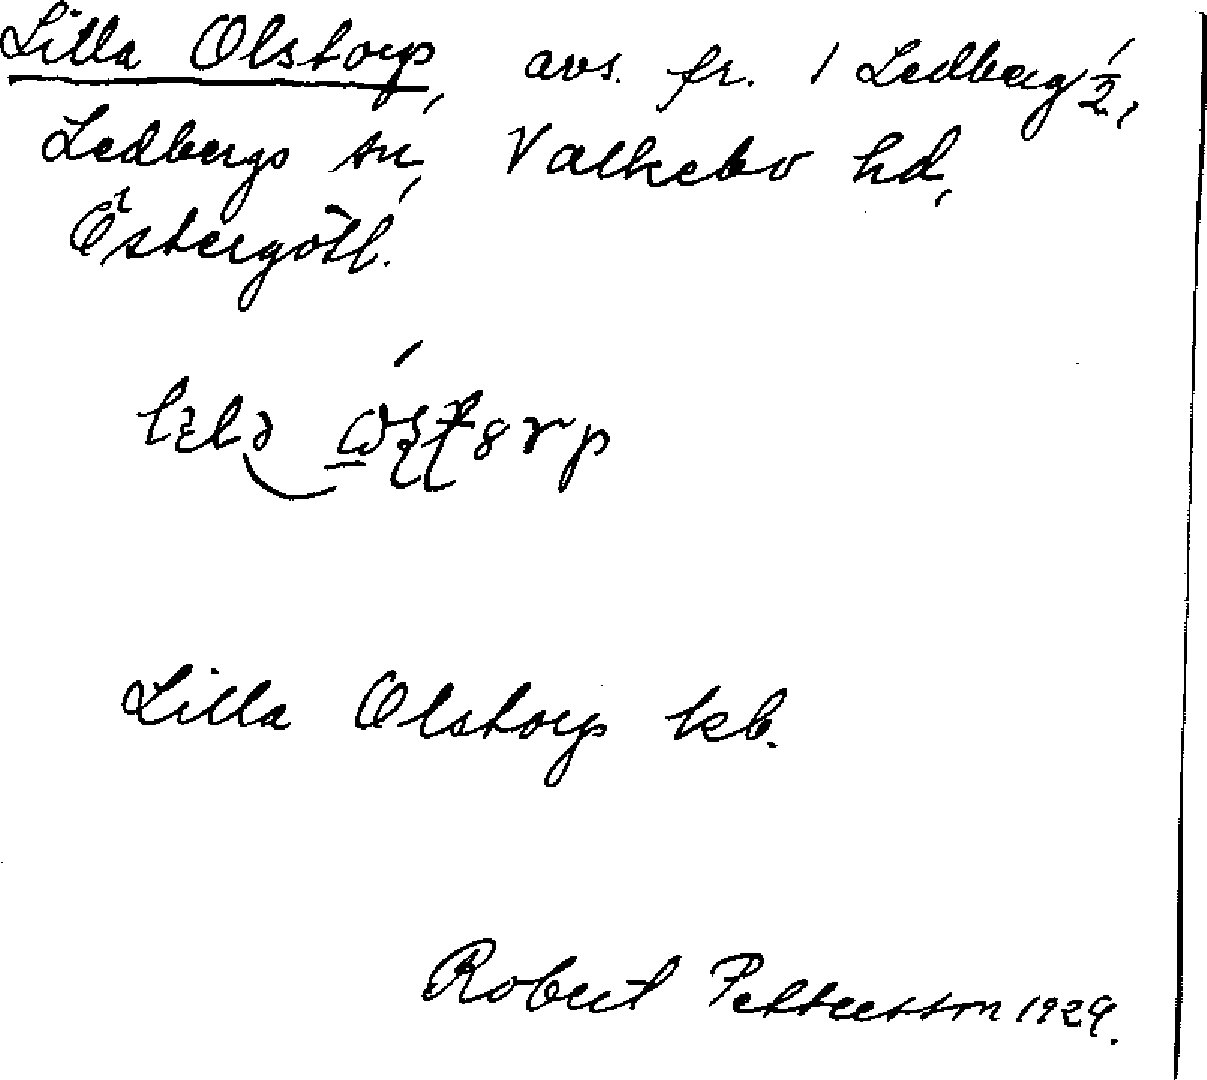 Lilla Olstorp, avs. fr. 1 Ledberg 1/2,
Ledbergs sn, Valkebo hd,
Östergötl.
Lilla Olstorp kb.
Robert Pettersson 1929.